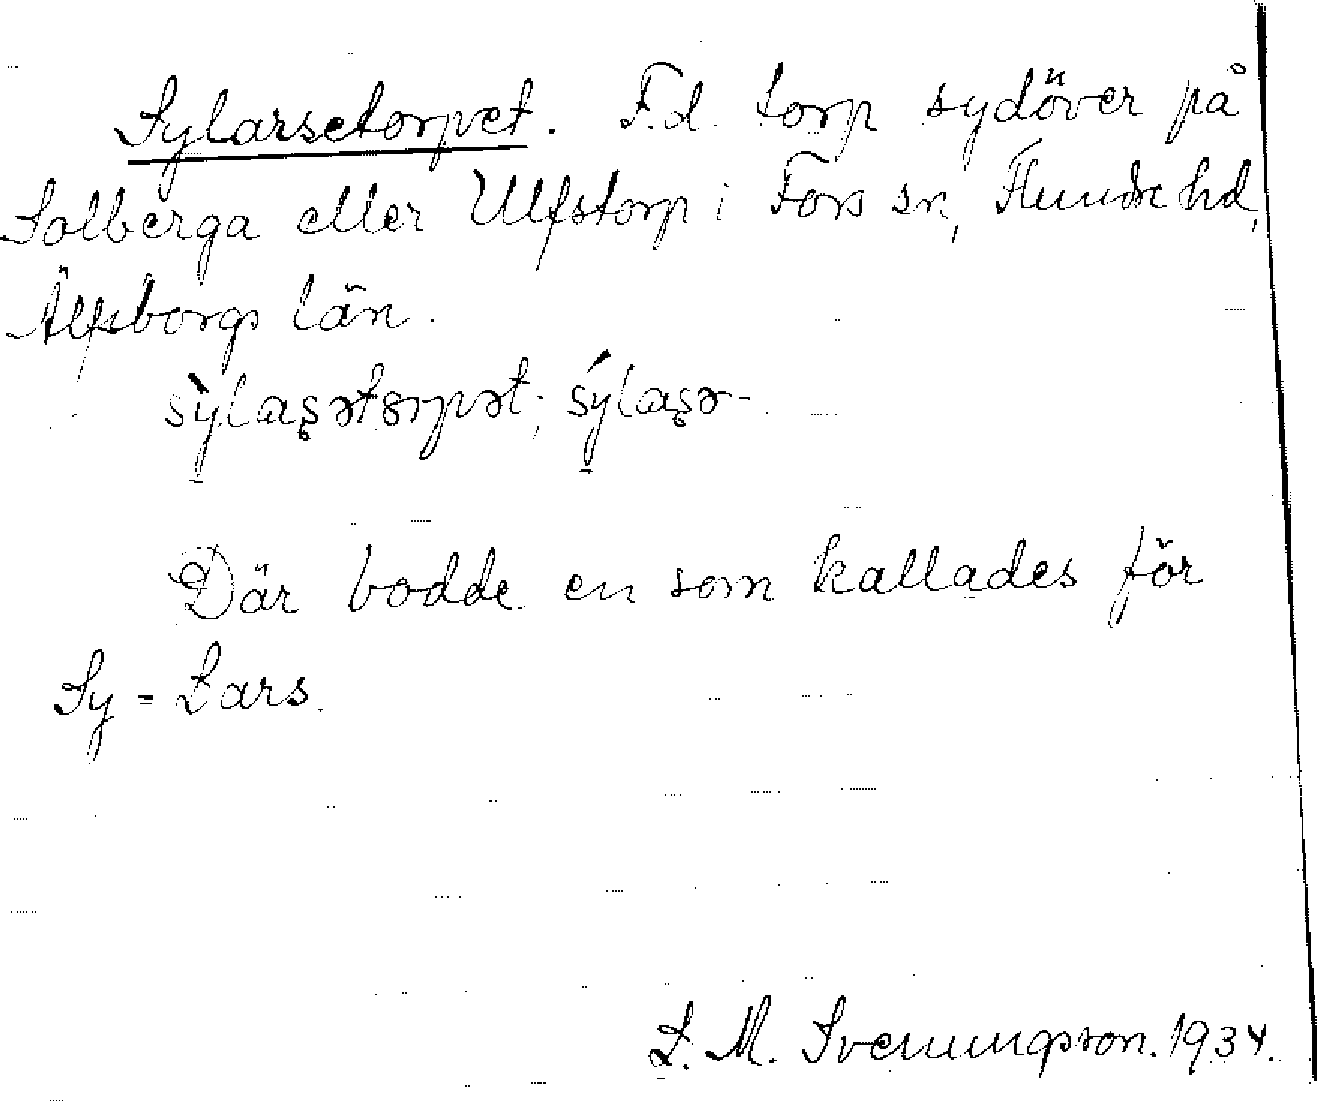 Sylarsetorpet. F.d. torp sydöver på
Solberga eller Ulfstorp i Fors sn, Flundre hd,
Älfsborgs län.
Där bodde en som kallades för
Sy-Lars.
L. M. Svenungsson. 1934.